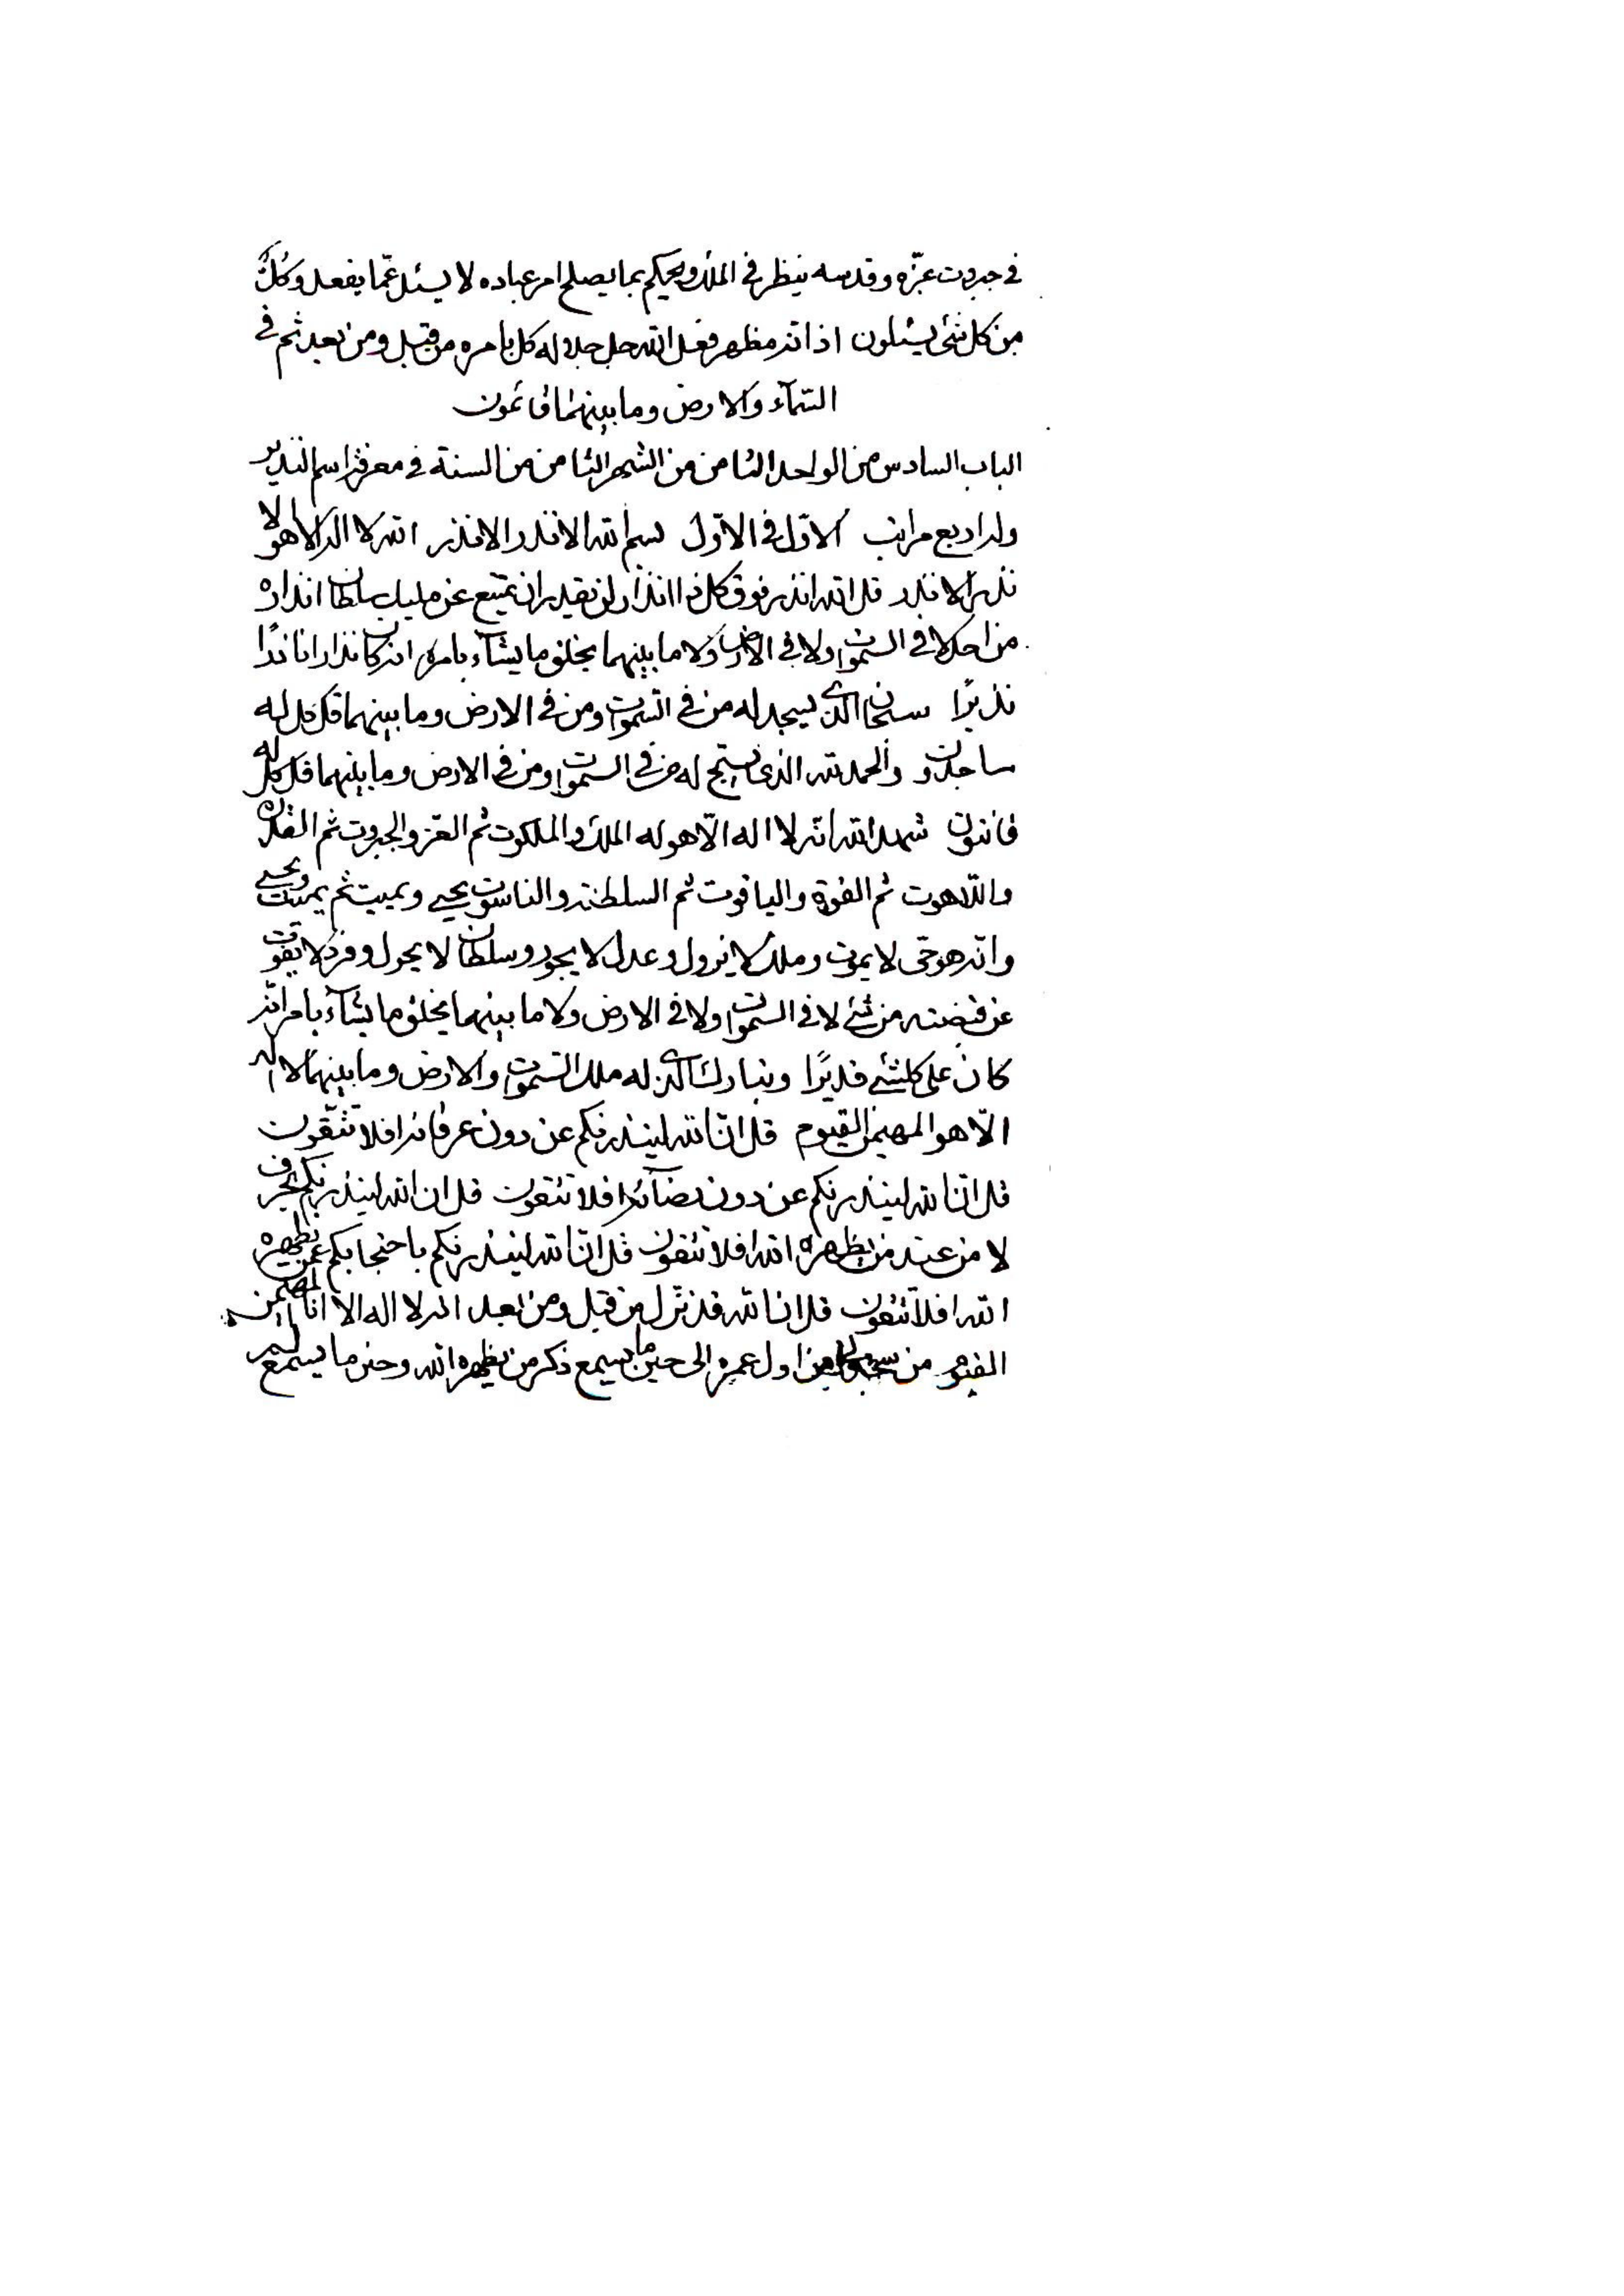 في جبروت عزّه وقدسه ينظر في الملك ويحكم بما يصلح امر عباده لا يسئل عمّا يفعل وكلٌّ
من كل شئ يسئلون اذ انه مظهر فعل الله جل جلاله كل بامره من قبل ومن بعد ثم في
السّمآء والارض وما بينهما قائمون
الباب السادس من الواحد الثامن من الشهر الثامن من السنة في معرفة اسم النذير
وله اربع مراتب الاوّل في الاوّل بسم الله الانذر الانذر الله لا اله الا هو الا
نذر الانذر قل الله انذر فوق كل ذا انذار لن يقدر ان يمتنع عن مليك سلطان انذاره
من احد لا في السموات ولا في الارض ولا ما بينهما يخلق ما يشآء بامره انه كان نذارا ناذرًا
نذيرًا سبحان الذي يسجد له من في السموات ومن في الارض وما بينهما قل كل له
ساجدون والحمد لله الذي يسبح له من في السموات ومن في الارض وما بينهما قل كل له
قانتون شهد الله انه لا اله الّا هو له الملك والملكوت ثم العز والجبروت ثم القدرة
واللاهوت ثم القوة والياقوت ثم السلطنة والناسوت يحيي ويميت ثم يميت ويحيي
وانه هو حيّ لا يموت وملك لا يزول وعدل لا يجور وسلطان لا يحول وفرد لا يفوت
عن قبضته من شئ لا في السموات ولا في الارض ولا ما بينهما يخلق ما يشآء بامره انه
كان على كلشئ قديرًا وتبارك الذي له ملك السموات والارض وما بينهما لا اله
الّا هو المهيمن القيوم قل انّا لله لينذرنكم عن دون عرفانه افلا تتّقون
قل انّا لله لينذرنكم عن دون رضآئه افلا تتقون قل ان الله لينذرنكم بحرف
لا من عند من يظهره الله افلا تتقون قل انّا لله لينذرنكم باحتجابكم عمن يظهره
الله افلا تتقون قل انا لله قد نزل من قبل ومن بعد انه لا اله الا انا المهيمن
القيوم من اول عمره الى حين ما يسمع ذكر من يظهره الله وحين ما يسمع